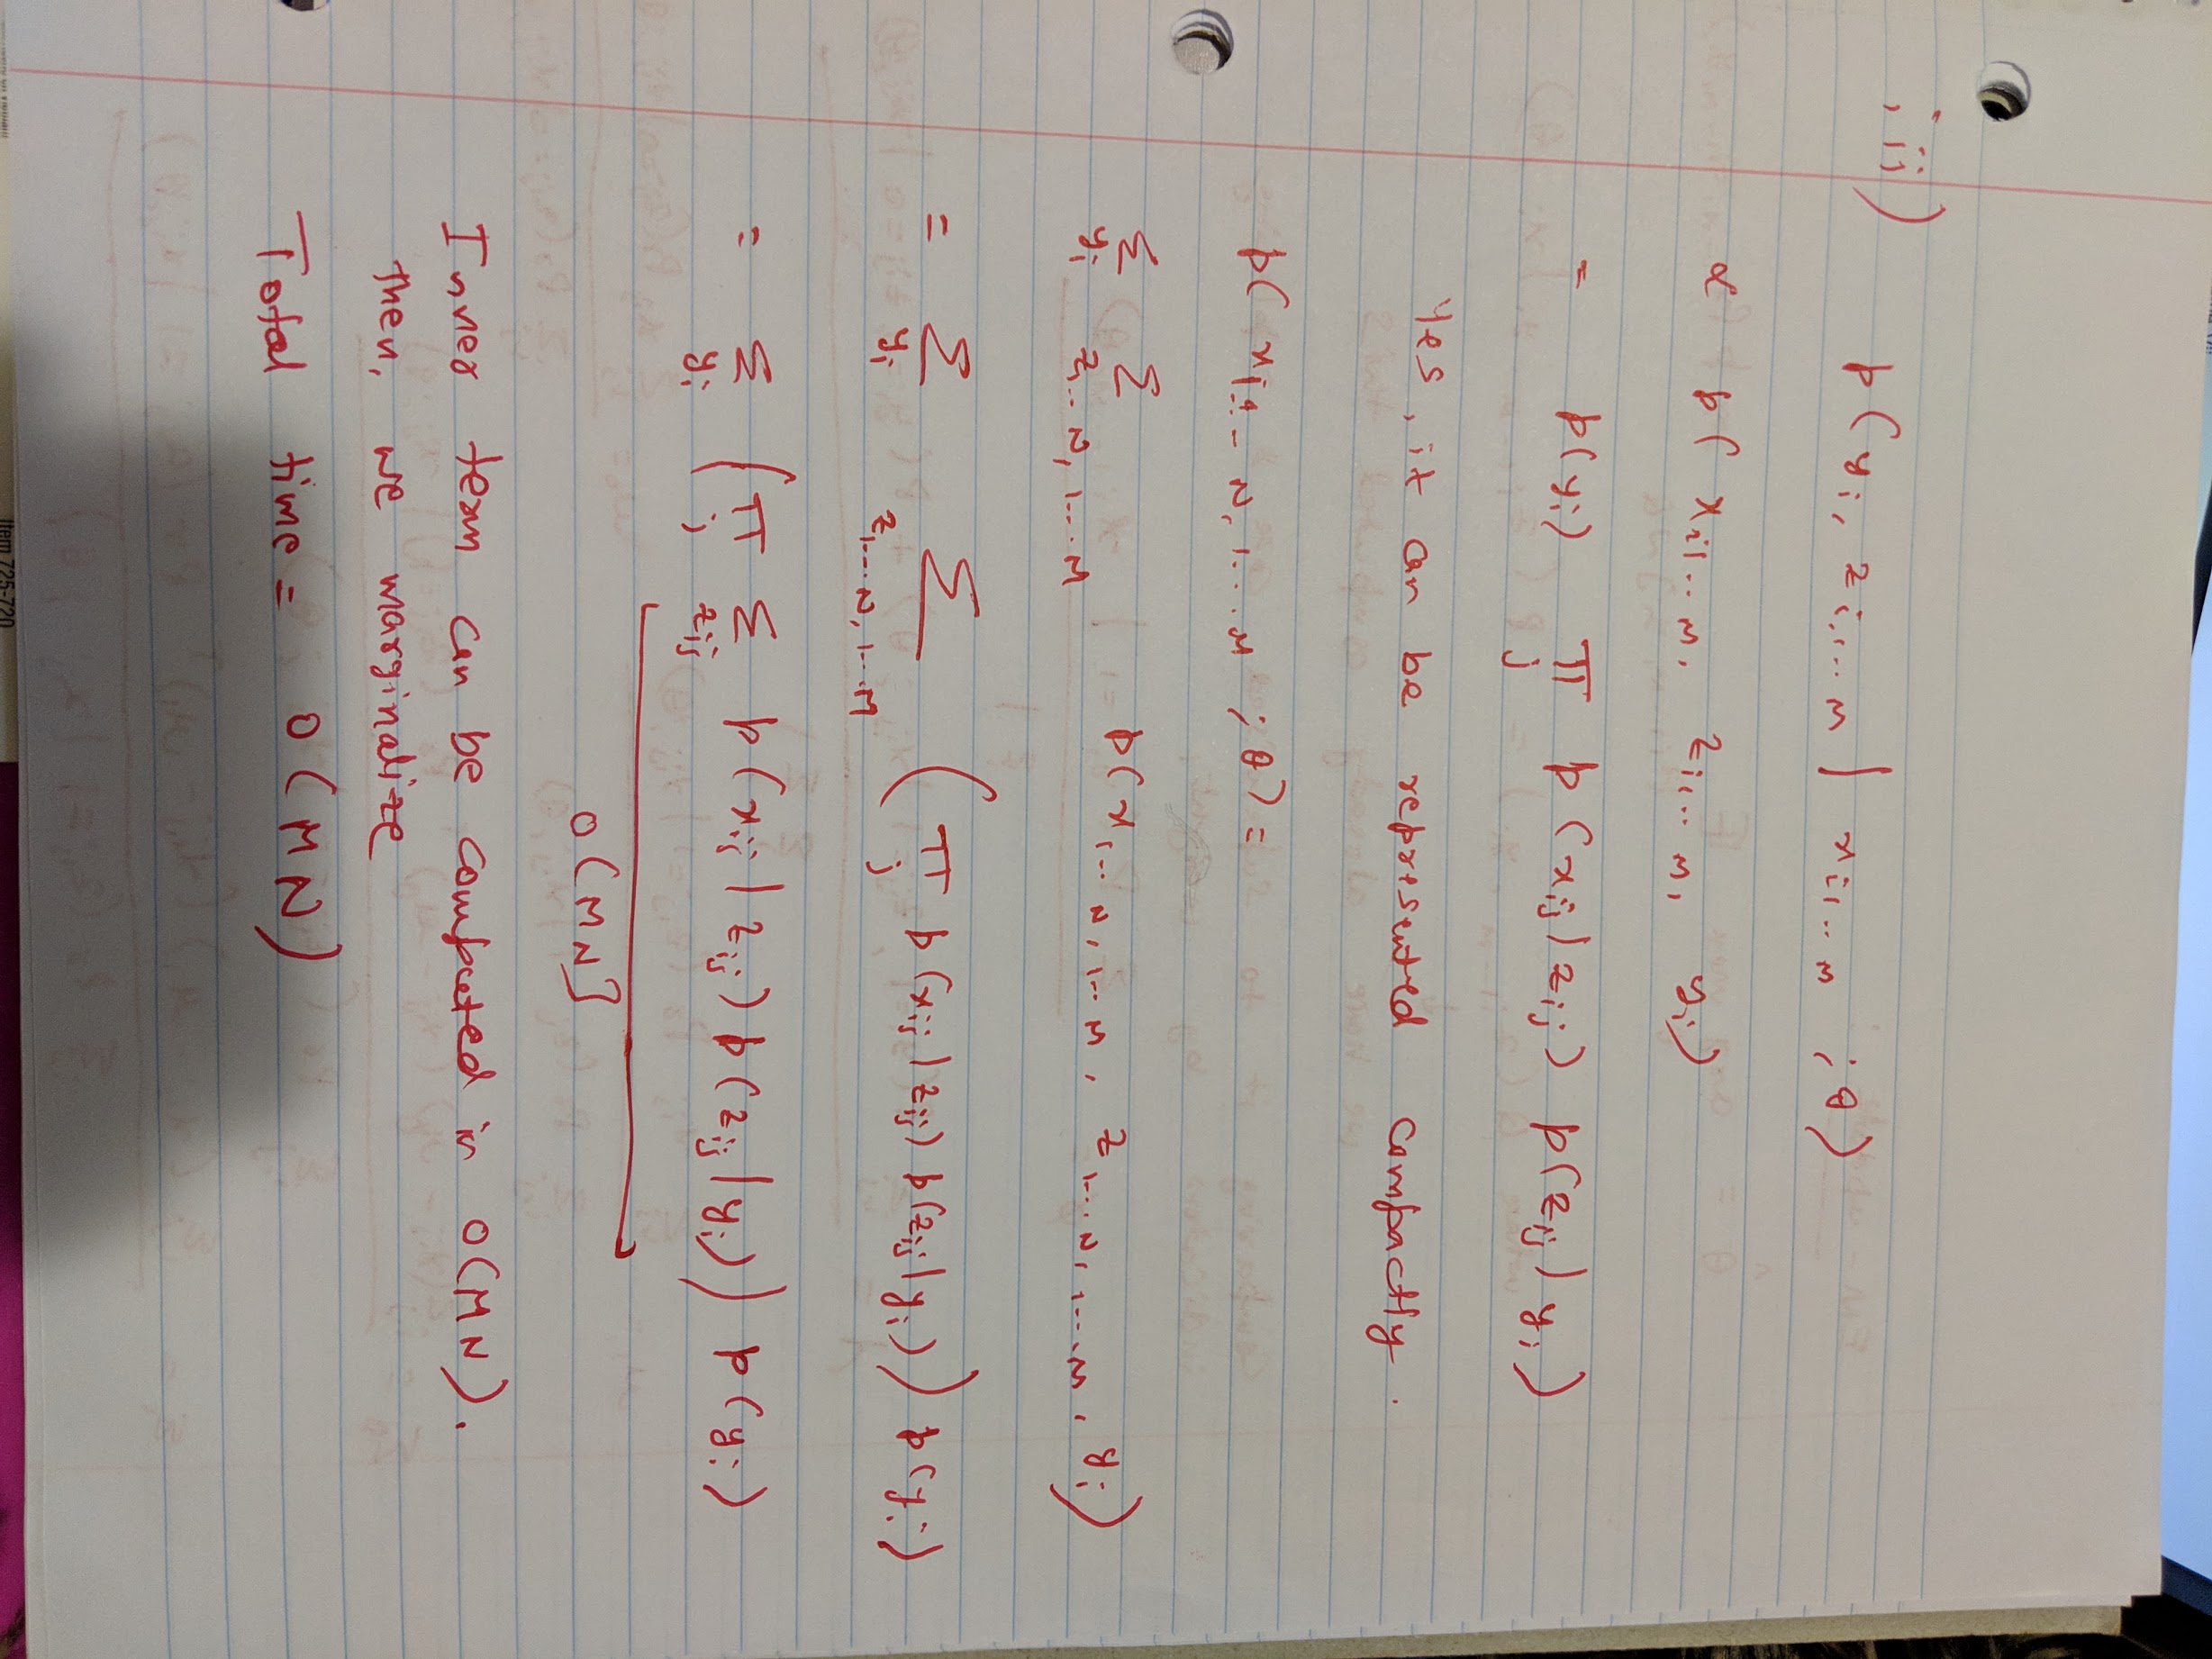 iii)
p(yi, zi,1...M | xi1...M ; θ)
∝ p( xi1...M, zi1...M, yi)
= p(yi) Π j p(xij|zij) p(zij|yi)
Yes, it can be represented compactly.
p( xi1...N, 1...M ; θ) =
Σ yi Σ z1...N, 1...M p(x1...N, 1...M, z1...N, 1...M, yi)
= Σ yi Σ z1...N, 1...M ( Π j p(xij|zij) p(zij|yi)) p(yi)
= Σ yi ( Π j Σ zij p(xij|zij) p(zij|yi)) p(yi)
O(MN)
Inner term can be computed in O(MN).
Then, we marginalize
Total time = O(MN)
Item 725-720